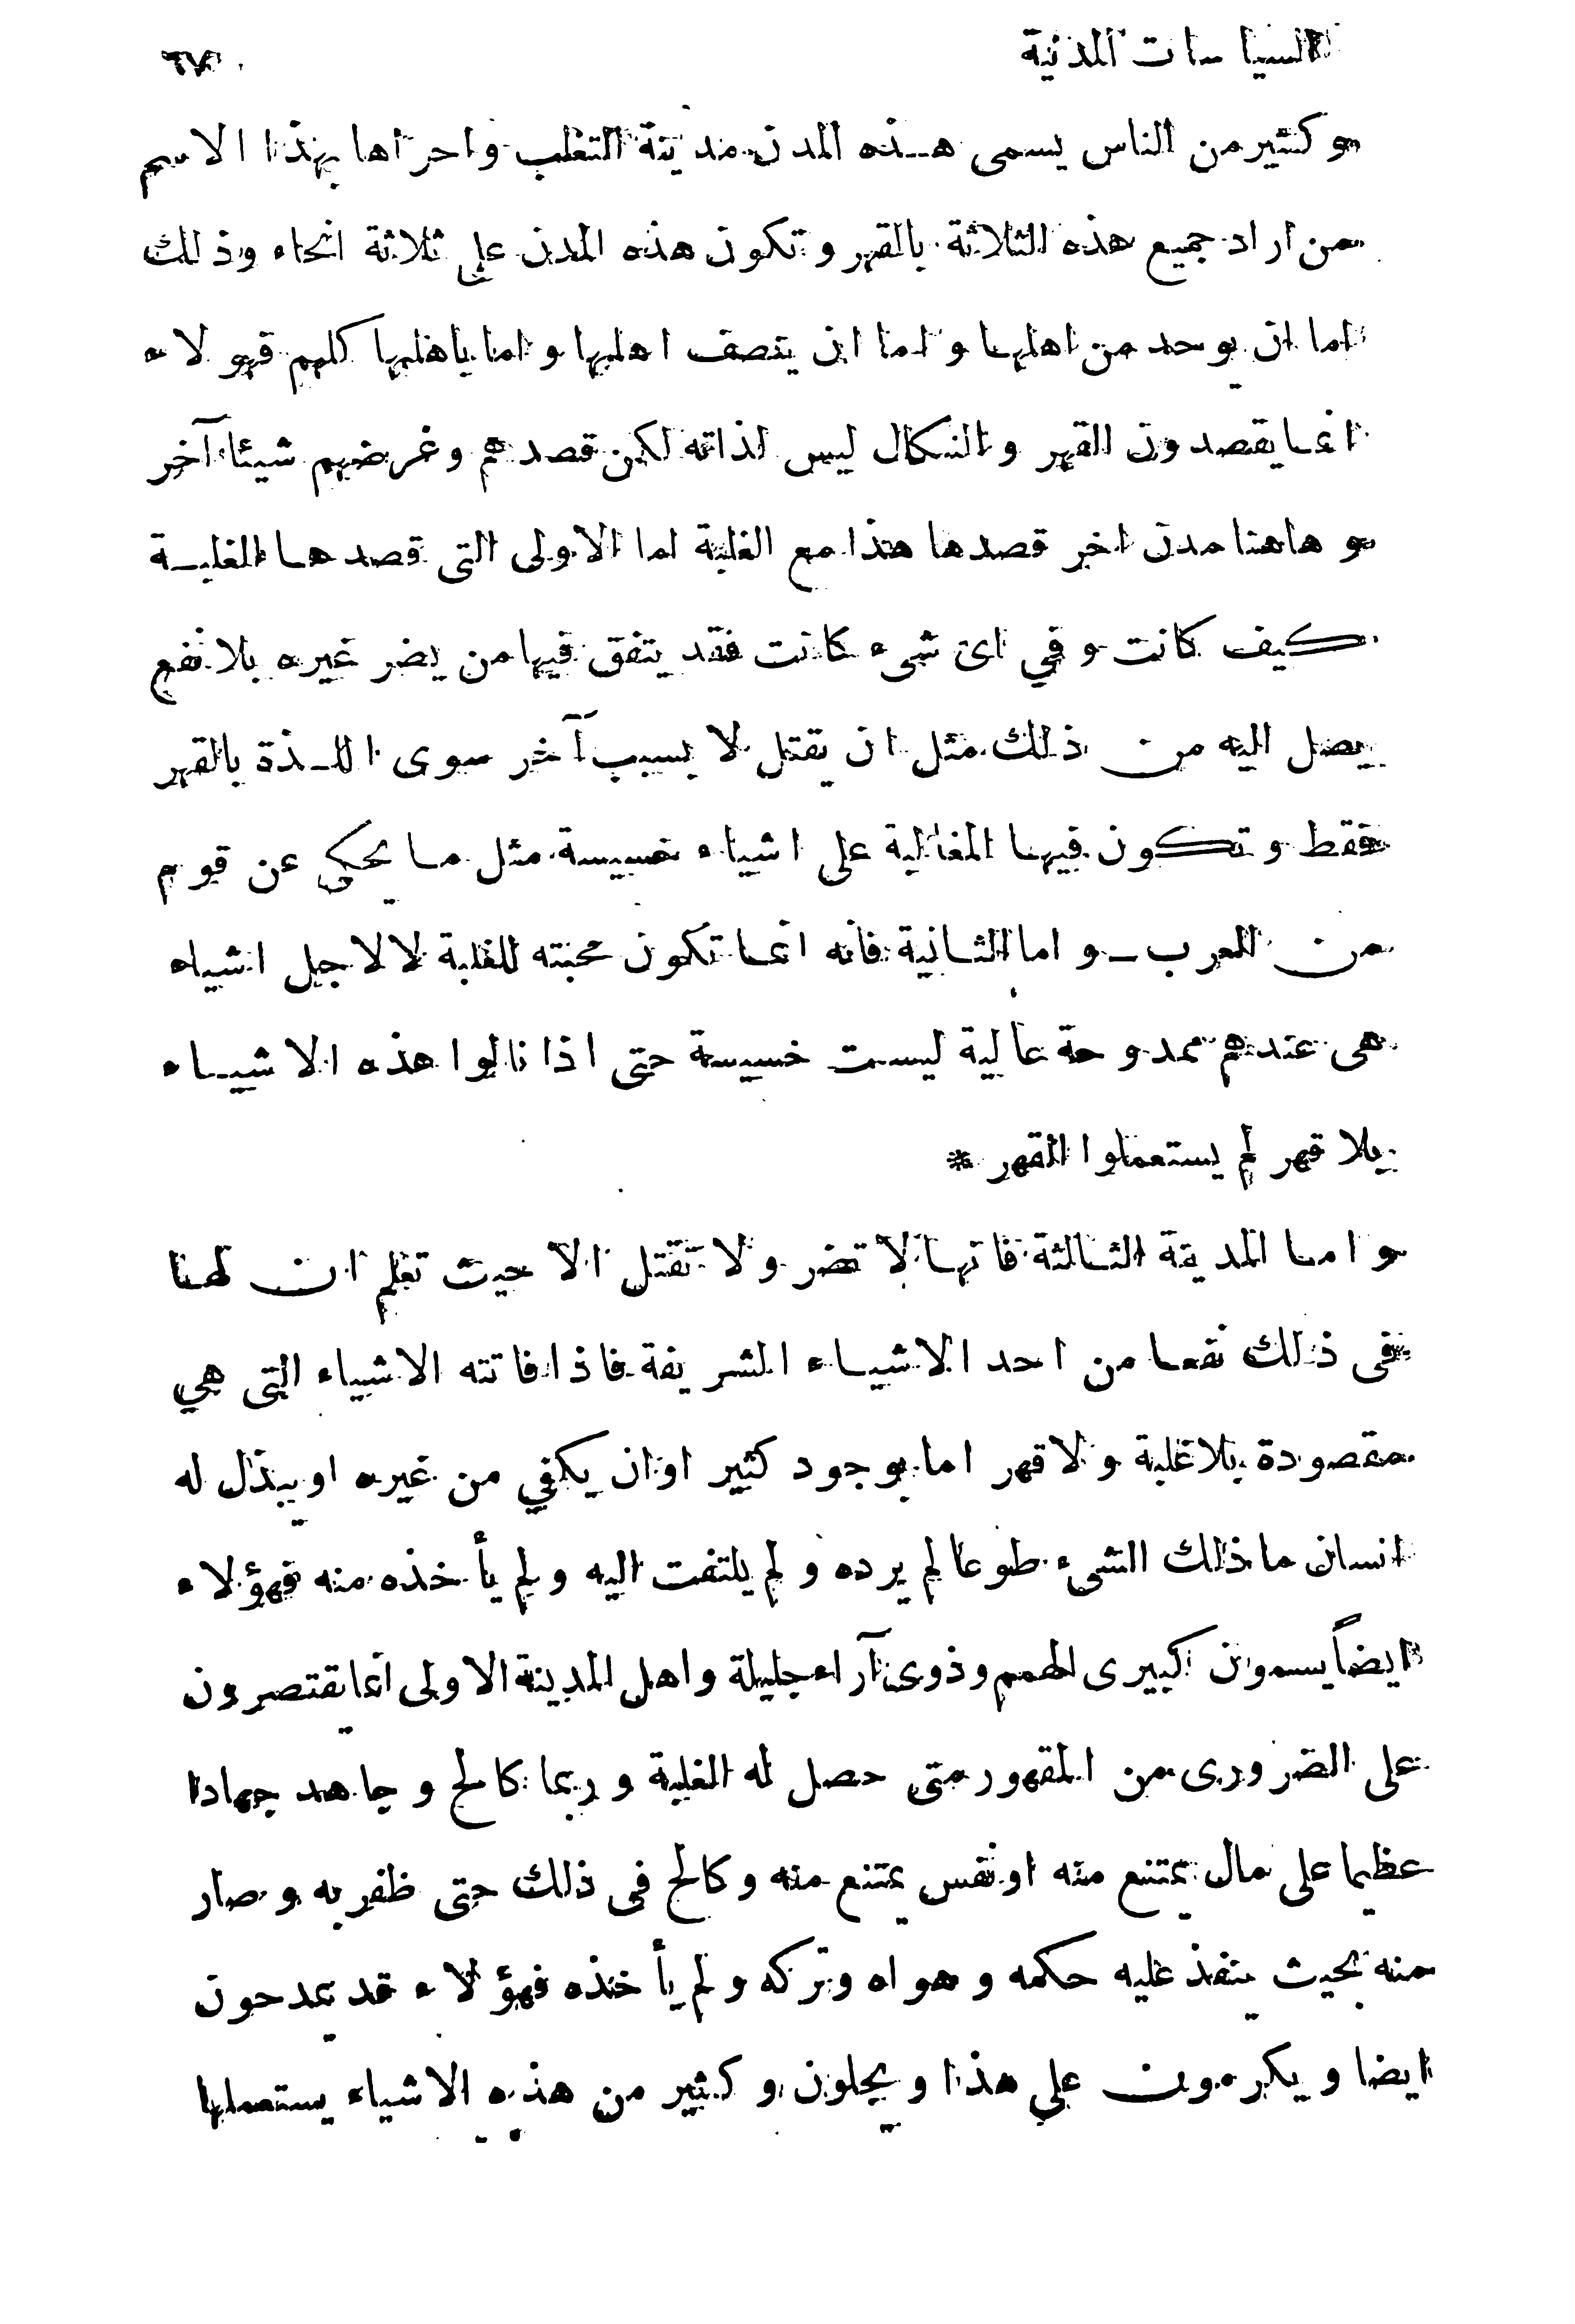 السياسات المدنية
وكثير من الناس يسمى هذه المدن مدينة التغلب واحراها بهذا الاسم
من اراد جميع هذه الثلاثة بالقهر وتكون هذه المدن على ثلاثة انحاء وذلك
اما ان يوحد من اهلها واما ان ينصف اهلها واما باهلها كلهم فهو لاء
انما يقصدون القهر والنكال ليس لذاته لكن قصدهم وغرضهم شيئا آخر
وهاهنا مدن اخر قصدها هذا مع الغلبة اما الاولى التى قصدها الغلبة
كيف كانت وفي اى شىء كانت فقد يتفق فيها من يضر غيره بلا نفع
يصل اليه من ذلك مثل ان يقتل لا بسبب آخر سوى اللذة بالقهر
فقط وتكون فيها المغالبة على اشياء خسيسة مثل ما يحكى عن قوم
من العرب ـ واما الثانية فانه انما تكون محبته للغلبة لا لاجل اشياء
هى عندهم ممدوحة عالية ليست خسيسة حتى اذا نالوا هذه الاشياء
بلا قهر لم يستعملوا القهر *
واما المدينة الثالثة فانها لا تضر ولا تقتل الا حيث تعلم ان لهنا
فى ذلك نفعا من احد الاشياء الشريفة فاذا فاتته الاشياء التى هي
مقصودة بلا غلبة ولا قهر اما بوجود كثير او ان يكفي من غيره او يبذل له
انسان ما ذلك الشىء طوعا لم يرده ولم يلتفت اليه ولم يأخذه منه فهؤلاء
ايضاً يسمون كبيرى الهمم وذوى آراء جليلة واهل المدينة الاولى انما يقتصرون
على الضرورى من المقهور متى حصل له الغلبة وربما كالح وجاهد جهادا
عظيما على مال يمتنع منه او نفس يمتنع منه وكالح فى ذلك حتى ظفر به وصار
منه بحيث ينفذ عليه حكمه وهواه وتركه ولم يأخذه فهؤلاء قد يمدحون
ايضا ويكرمون على هذا ويجلون وكثير من هذه الاشياء يستعملها